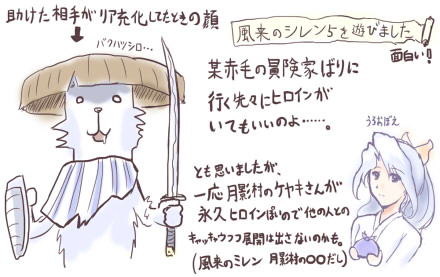 助けた相手がリア充化してたときの顔
バクハツシロ…
風来のシレン5を遊びました
面白い!
某赤毛の冒険家ばりに
行く先々にヒロインが
いてもいいのよ……。
うろおぼえ
とも思いましたが、
一応 月影村のケヤキさんが
永久ヒロインぽいので他の人との
キャッキャウフフ展開は出さないのかも。
(風来のミレン 月影村の〇〇だし)